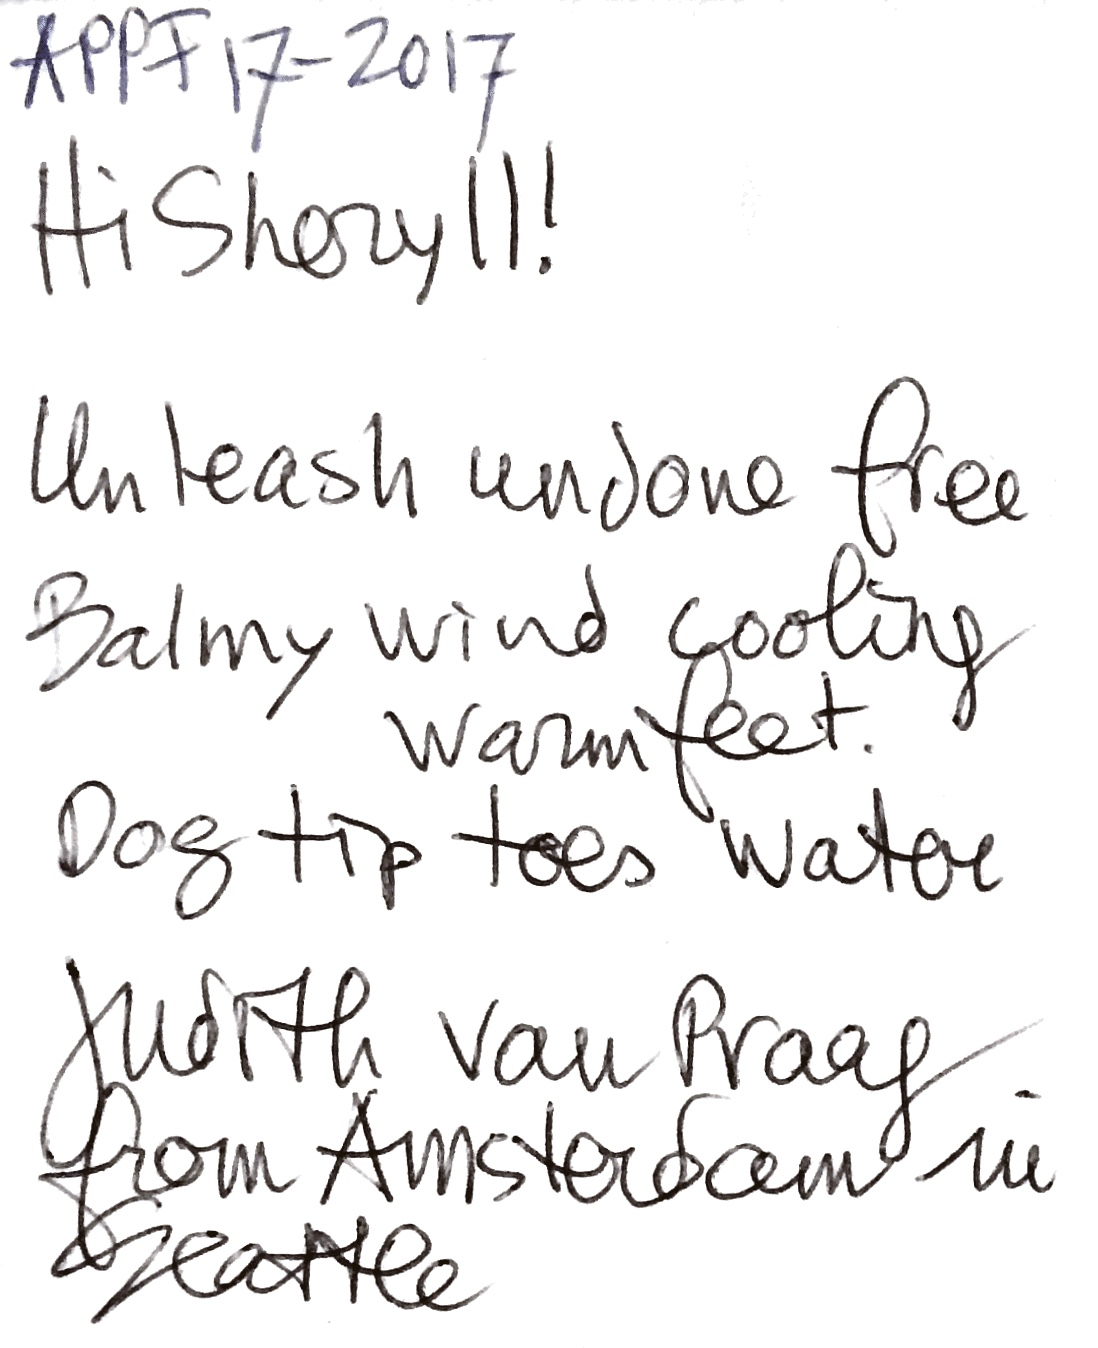 APPF 17-2017
Hi Sheryll!
Unleash undone free
Balmy wind cooling
warm feet.
Dog tip toes water
Judith van Praag
from Amsterdam in
Seattle